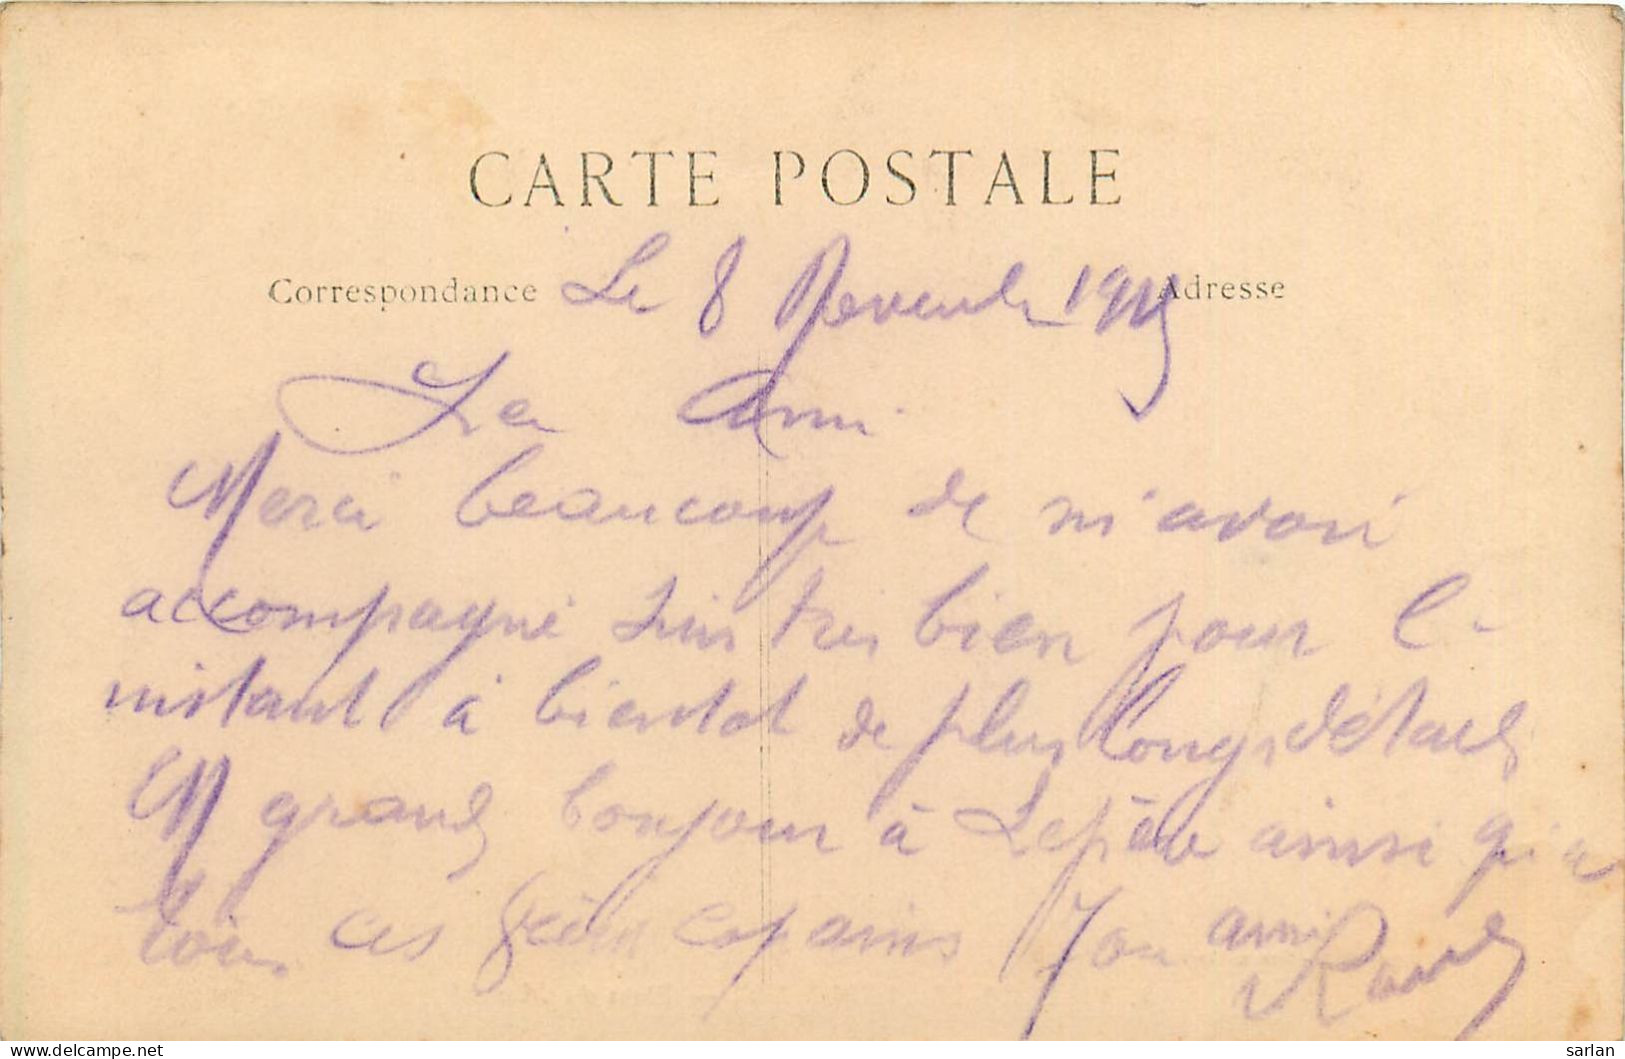 CARTE POSTALE
Correspondance Le 8 Novembre Adresse
Ami
Merci beaucoup de m'avoir
accompagné suis tres bien pour l'
instant à bientot de plus longs détails
grand bonjour à ainsi qu'a
tous ces copains Ton ami
Raoul
delcampe.net
sarlan